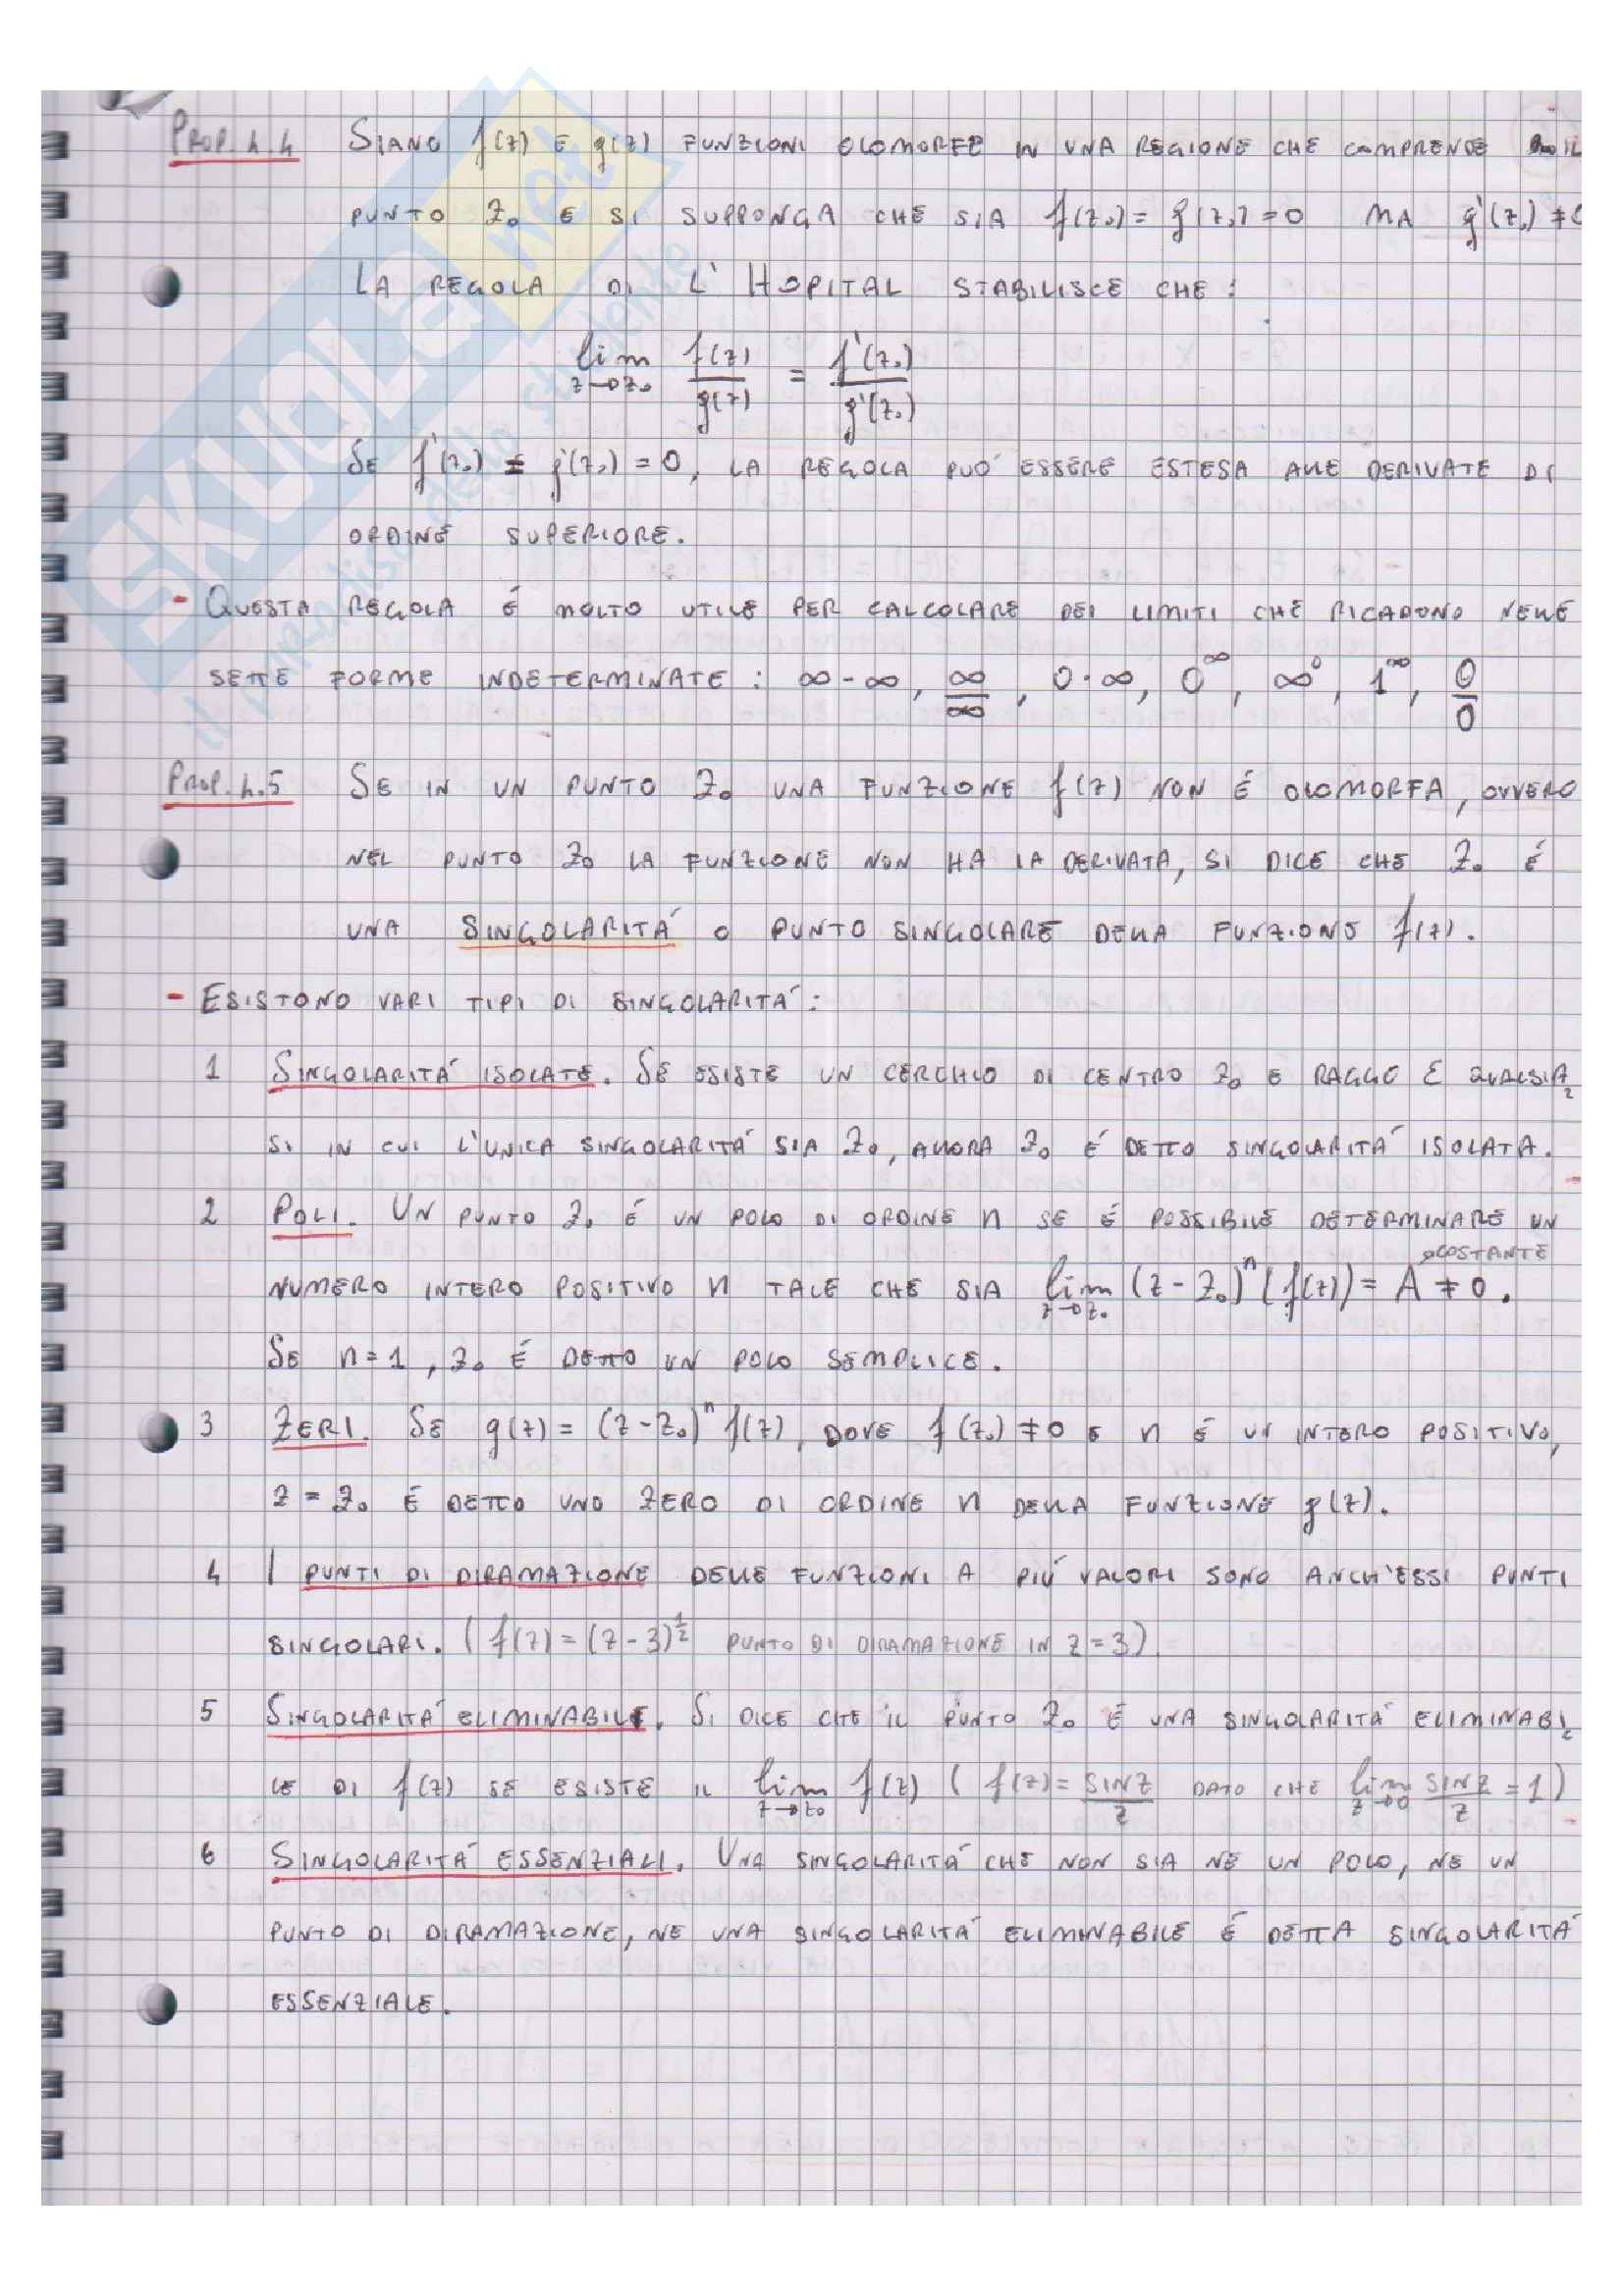 PROP. 4.4 SIANO f(z) E g(z) FUNZIONI OLOMORFE IN UNA REGIONE CHE COMPRENDE IL
PUNTO z₀ E SI SUPPONGA CHE SIA f(z₀) = g(z₀) = 0 MA g'(z₀) ≠ 0
LA REGOLA DI L'HOPITAL STABILISCE CHE:
lim z→z₀ f(z)/g(z) = f'(z₀)/g'(z₀)
SE f'(z₀) = g'(z₀) = 0, LA REGOLA PUÓ ESSERE ESTESA ALLE DERIVATE DI
ORDINE SUPERIORE.
- QUESTA REGOLA É MOLTO UTILE PER CALCOLARE DEI LIMITI CHE RICADONO NELLE
SETTE FORME INDETERMINATE: ∞-∞, ∞/∞, 0·∞, 0^∞, ∞^0, 1^∞, 0/0
PROP. 4.5 SE IN UN PUNTO z₀ UNA FUNZIONE f(z) NON É OLOMORFA, OVVERO
NEL PUNTO z₀ LA FUNZIONE NON HA LA DERIVATA, SI DICE CHE z₀ É
UNA SINGOLARITÁ O PUNTO SINGOLARE DELLA FUNZIONE f(z).
- ESISTONO VARI TIPI DI SINGOLARITÁ:
1 SINGOLARITÁ ISOLATE. SE ESISTE UN CERCHIO DI CENTRO z₀ E RAGGIO ε QUALSIA=
SI IN CUI L'UNICA SINGOLARITÁ SIA z₀, ALLORA z₀ É DETTO SINGOLARITÁ ISOLATA.
2 POLI. UN PUNTO z₀ É UN POLO DI ORDINE n SE É POSSIBILE DETERMINARE UN
COSTANTE
NUMERO INTERO POSITIVO n TALE CHE SIA lim z→z₀ (z-z₀)^n (f(z)) = A ≠ 0.
SE n=1, z₀ É DETTO UN POLO SEMPLICE.
3 ZERI. SE g(z) = (z-z₀)^n f(z), DOVE f(z₀) ≠ 0 E n É UN INTERO POSITIVO,
z = z₀ É DETTO UNO ZERO DI ORDINE n DELLA FUNZIONE g(z).
4 I PUNTI DI DIRAMAZIONE DELLE FUNZIONI A PIÚ VALORI SONO ANCH'ESSI PUNTI
SINGOLARI. (f(z) = (z-3)^½ PUNTO DI DIRAMAZIONE IN z=3)
5 SINGOLARITÁ ELIMINABILI. SI DICE CHE IL PUNTO z₀ É UNA SINGOLARITÁ ELIMINABI=
LE DI f(z) SE ESISTE IL lim z→z₀ f(z) (f(z) = sin z/z DATO CHE lim z→0 sin z/z = 1)
6 SINGOLARITÁ ESSENZIALI. UNA SINGOLARITÁ CHE NON SIA NE UN POLO, NE UN
PUNTO DI DIRAMAZIONE, NE UNA SINGOLARITÁ ELIMINABILE É DETTA SINGOLARITÁ
ESSENZIALE.
SKUOLA.net
il paradiso dello studente